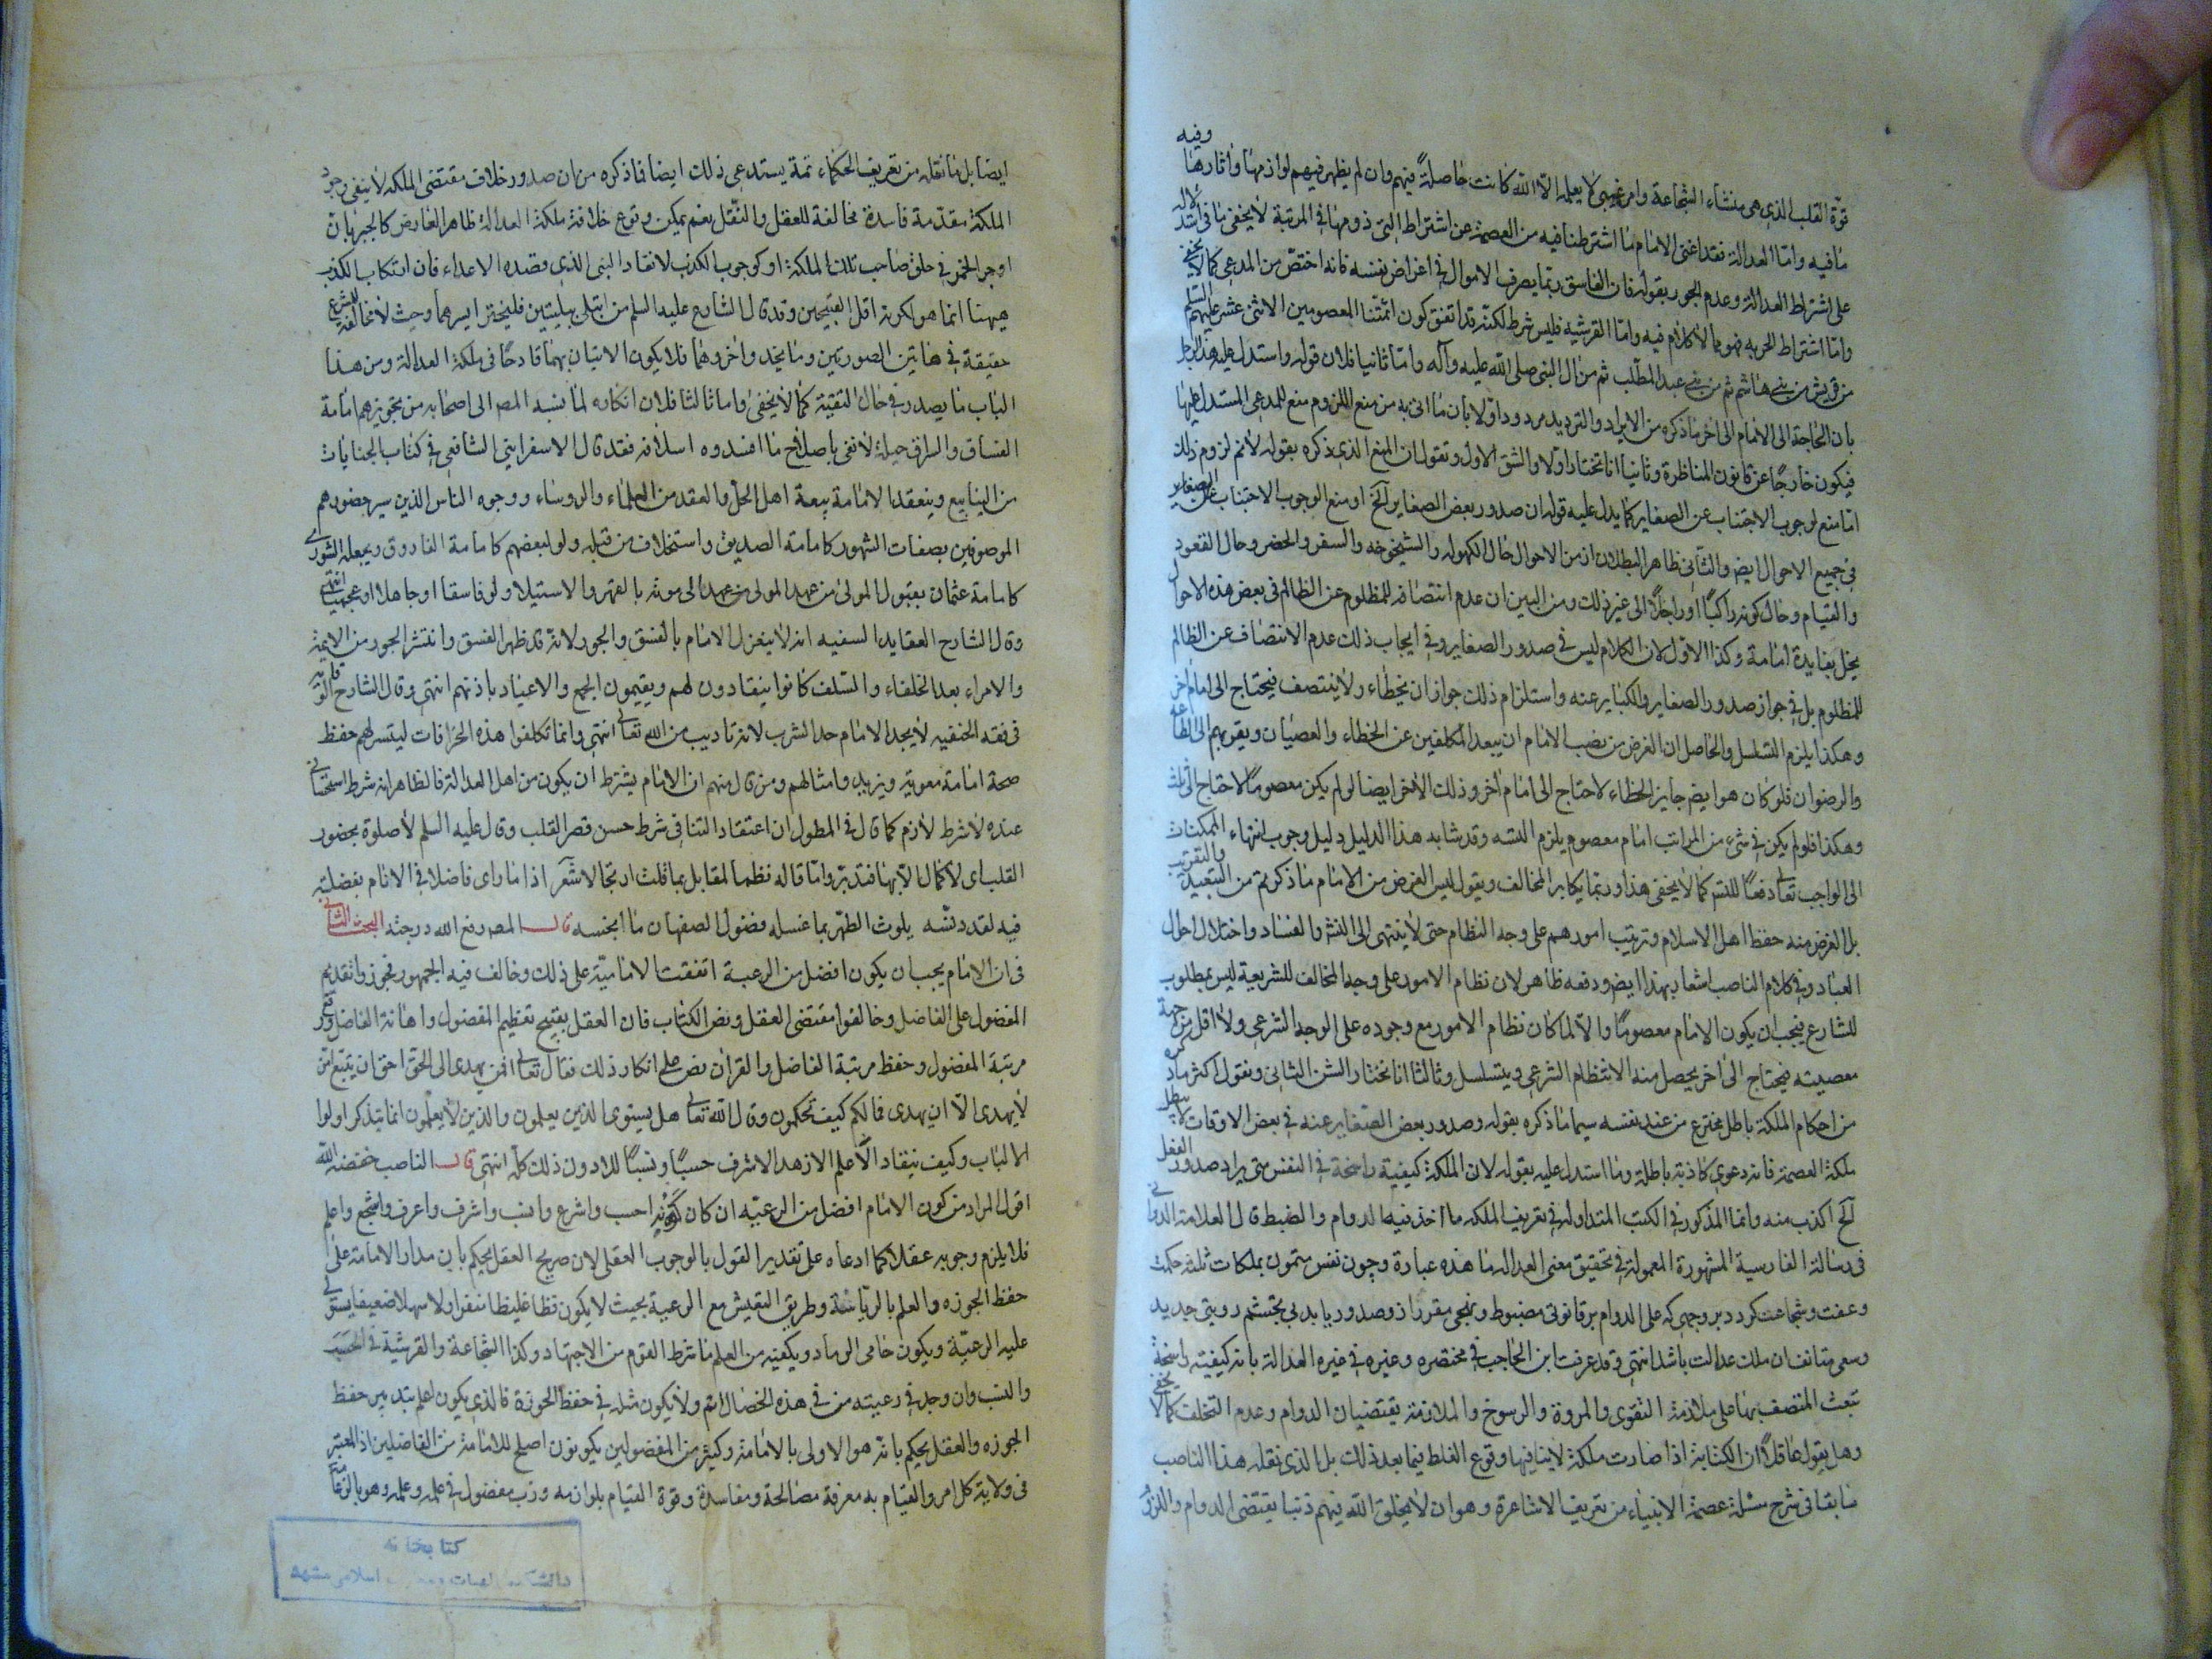 قوّة القلب الذي هي منشاء الشجاعة وامر غيبي لا يعلمه الّا الله كانت حاصلة فيهم وان لم يظهر فيهم لوازمها واثارها وفيه
ما فيه وامّا العدالة فقد اغنى الامام ما اشترطنا فيه من العصمة عن اشتراط التي دونها في المرتبة لا يخفى ما في استدلاله
على اشتراط العدالة وعدم الجور بقوله فان الفاسق ربّما يصرف الاموال في اغراض نفسه فانه اخصّ من المدعى كما لا يخفى
وامّا اشتراط الحرية فهو مما لا كلام فيه وامّا القرشية فليس شرط لكنّه قد اتفق كون ائمّتنا المعصومين الاثنى عشر عليهم السلم
من قريش من بني هاشم ثم من بني عبد المطّلب ثم من ال النبي صلى الله عليه وآله وامّا ثانيا فلان قوله واستدل عليه هذا
بان الحاجة الى الامام الى اخر ما ذكره من الايراد والترديد مردود اوّلا بان ما اتى به من منع اللزوم منع للمدعى المستدل عليها
فيكون خارجًا عن قانون المناظرة وثانيا انا نختار اوّلا والشق الاول ونقول ان المنع الذي ذكره بقوله لا نم لزوم ذلك
امّا منع لوجوب الاجتناب عن الصغاير كما يدل عليه قوله ان صدور بعض الصغاير الخ او منع الوجوب الاجتناب عن الصغاير
في جميع الاحوال ايضا والثاني ظاهر البطلان اذ من الاحوال حال الكهولة والشيخوخه والسفر والحضر وحال القعود
والقيام وحال كونه راكبًا او راجلًا الى غير ذلك ومن البين ان عدم انتصافه للمظلوم عن الظالم في بعض هذه الاحوال
يخل بفايدة امامة وكذا الاوّل لان الكلام ليس في صدور الصغاير وفي ايجاب ذلك عدم الانتصاف عن الظالم
للمظلوم بل في جواز صدور الصغاير والكبائر عنه واستلزام ذلك جواز ان يخطاء ولا ينتصف فيحتاج الى امام اخر
وهكذا يلزم التسلسل والحاصل ان الغرض من نصب الامام ان يبعد المكلفين عن الخطاء والعصيان ويقربهم الى الطاعة
والرضوان فلو كان هو ايضا جايز الخطاء لاحتاج الى امام اخر وذلك الاخر ايضا لو لم يكن معصومًا لاحتاج الى ثالث
وهكذا فلو لم يكن في شيء من المراتب امام معصوم يلزم التسه وقد شابه هذا الدليل دليل وجوب انتهاء الممكنات
الى الواجب تعالى دفعًا للتسم كما لا يخفى هذا وربّما يكابر المخالف ويقول ليس الغرض من الامام ما ذكرتم من التبعيد والتقريب
بل الغرض منه حفظ اهل الاسلام وترتيب امورهم على وجه النظام حتى لا ينتهى الى الفتنة والفساد واختلال احوال
العباد وفي كلام الناصب اشعار بهذا ايضا ودفعه ظاهر لان نظام الامور على وجه المخالف للشريعة ليس بمطلوب
للشارع فيجب ان يكون الامام معصومًا والّا لما كان نظام الامور مع وجوده على الوجه الشرعي ولا اقل من جهة
معصيته فيحتاج الى اخر يحصل منه الانتظام الشرعي ويتسلسل وثالثا انا نختار الشق الثاني ونقول اكثر ما ذكره
من احكام الملكة باطل مخترع من عند نفسه سيما ما ذكره بقوله وصدور بعض الصغاير عنه في بعض الاوقات لا يبطل
ملكة العصمة فانه دعوى كاذبة باطلة وما استدل عليه بقوله لان الملكة كيفية راسخة في النفس متى يراد صدور الفعل
الخ اكذب منه وانما المذكور في الكتب المتداوله في تعريف الملكه ما اخذ فيها الدوام والضبط قال العلامة الدواني
في رسالته الفارسية المشهورة المعمولة في تحقيق معنى العداله ما هذه عبارة وچون نفس متمون بملكات ثلثه حكمت
وعفت وشجاعت كردد بر وجهى كه على الدوام بر قانونى مضبوط ونهجى مقرر از وصدور يابد بى تجشم رويتى جديد
وسعى متانف ان ملكه عدالت باشد انتهى وقد عرفت ابن الحاجب في مختصره وغيره في غيره العدالة بانه كيفيته راسخة
تبعث المتصف بها على ملازمة التقوى والمروة والرسوخ والملازمة يقتضيان الدوام وعدم التخلف كما لا يخفى
وهل يقول عاقل ان الكتابة اذا صارت ملكة لا ينافيها وقوع الغلط فيما بعد ذلك بل الذى نقله هذا الناصب
سابقا في شرح مسئلة عصمة الانبياء من تعريف الاشاعرة وهو ان لا يخلق الله فيهم ذنبا يقتضى الدوام واللزوم
ايضا بل ما نقله من تعريف الحكماء ثمة يستدعى ذلك ايضا فما ذكره من ان صدور خلاف مقتضى الملكه لا ينفى وجود
الملكة مقدّمة فاسدة مخالفة للعقل والنّقل نعم يمكن وقوع خلاف ملكة العدالة ظاهرا لعارض كالجبر بان
اوجر الخمر في حلق صاحب تلك الملكة او كوجوب الكذب لانقاذ النبي الذي قصده الاعداء فان ارتكاب الكذب
هيهنا انما هو لكونه اقل القبيحين وقد قال الشارع عليه السلم من ابتلى ببليتين فليختر ايسرهما وحيث لا مخالفة للشرع
حقيقة في هاتين الصورتين وما يحذو حذوهما فلا يكون الاتيان بهما قادحًا في ملكة العدالة ومن هذا
الباب ما يصدر في حال التقيّة كما لا يخفى واما ثالثا فلان انكاره لما نسبه المص الى اصحابه من تجويزهم امامة
الفساق والسراق حيلة لا تفى باصلاح ما افسدوه اسلافه فقد قال الاسفرايني الشافعي في كتاب الجنايات
من الينابيع وينعقد الامامة ببيعة اهل الحل والعقد من العلماء والروساء ووجوه الناس الذين سير حضورهم
الموصوفين بصفات الشهور كامامة الصديق واستخلاف من قبله ولو لبعضهم كامامة الفاروق وبجعله الشورى
كامامة عثمان بقبول المولى من عهد المولى من عهده الى موته بالقهر والاستيلاء ولو فاسقا او جاهلا او عجميا انتهى
وقال الشارح العقايد السفيه انه لا ينعزل الامام بالفسق والجور لانه قد ظهر الفسق وانتشر الجور من الايمة
والامراء بعد الخلفاء والسّلف كانوا ينقادون لهم ويقيمون الجمع والاعياد باذنهم انتهى وقال الشارح الوقاية
في فقه الحنفيه لا يحد الامام حد الشرب لانه تاديب من الله تعالى انتهى وانما تكلفوا هذه الخرافات ليتسر لهم حفظ
صحة امامة معوية ويزيد وامثالهم ومن قال منهم ان الامام يشترط ان يكون من اهل العدالة فالظاهر انه شرط استحسانى
عنده لا شرط لازم كما قال في المطول ان اعتقاد التنافى شرط حسن قصر القلب وقال عليه السلم لا صلوة بحضور
القلب اى لا كمال لها فتدبّر وامّا قاله نظما لمقابل بما قلت ارتجالا شعر اذا ما راى فاضلا في الانام بفضلته
فيه لقد دنّسه يلوث الطهر بما غسله فضول لصفهان ما انجسه قال المصه رفع الله درجته البحث الثانى
في ان الامام يجب ان يكون افضل من الرعية اتفقت الاماميّة على ذلك وخالف فيه الجمهور فجوزوا تقديم
المفضول على الفاضل وخالفوا مقتضى العقل ونص الكتاب فان العقل يقبح تعظيم المفضول واهانة الفاضل ورفع
مرتبة المفضول وحفظ مرتبة الفاضل والقرآن نص على انكار ذلك فقال تعالى افمن يهدى الى الحق احق ان يتبع امّن
لا يهدى الّا ان يهدى فما لكم كيف تحكمون وقال الله تعالى هل يستوى الذين يعلمون والذين لا يعلمون انما يتذكر اولوا
الالباب وكيف ينقاد الاعلم الازهد الاشرف حسبًا ونسبًا للادون ذلك كلّه انتهى قال الناصب خفضه الله
اقول المراد من كون الامام افضل من الرعيّه ان كان كونه احسب واشرع وانسب واشرف واعرف واشجع واعلم
فلا يلزم وجوبه عقلا كما ادعاه على تقدير القول بالوجوب العقلى لان صريح العقل يحكم بان مدار الامامة على
حفظ الحوزه والعلم بالرياسة وطريق التعيش مع الرعية بحيث لا يكون فظا غليظا منفرا ولا سهلا ضعيفا يستولى
عليه الرعيّة ويكون حامى الرماد ويكفيه من العلم ما شرط القوم من الاجتهاد وكذا الشجاعة والقرشية في الحسب
والنسب وان وجد في رعيته من في هذه الخصال اتم ولا يكون مثله في حفظ الحوزة فالذى يكون اعلم بتدبير حفظ
الحوزه والعقل يحكم بانّه هو الاولى بالامامة وكثير من المفضولين يكونون اصلح للامامة من الفاضلين اذ المعتبر
في ولاية كل امر والقيام به معرفة مصالحة ومفاسدة وقوة القيام بلوازمه وربّ مفضول في علمه وعمله وهو بالزعامة
كتابخانه
دانشكده الهيات و معارف اسلامى مشهد